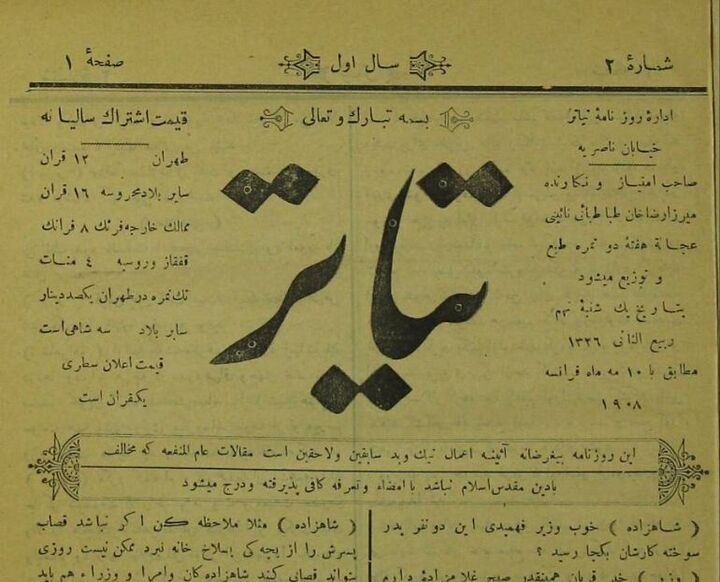 شمارهٔ ۲
سال اول
صفحهٔ ۱
ادارهٔ روزنامهٔ تیاتر
خیابان ناصریه
صاحب امتیاز و نگارنده
میرزا رضاخان طباطبائی نائینی
عجالة هفتهٔ دو نمره طبع
و توزیع میشود
بتاریخ یک شنبهٔ نهم
ربیع الثانی ۱۳۲۶
مطابق با ۱۰ مه ماه فرانسه
۱۹۰۸
بسمه تبارک و تعالی
تیاتر
قیمت اشتراک سالیانه
طهران ۱۲ قران
سایر بلاد محروسه ۱۶ قران
ممالک خارجه فرنک ۸ فرانک
قفقاز و روسیه ۴ منات
تک نمره در طهران یکصد دینار
سایر بلاد سه شاهی است
قیمت اعلان سطری
یکقران است
این روزنامه بیغرضانه آئینه اعمال نیک و بد سابقین و لاحقین است مقالات عام المنفعه که مخالف
بادین مقدس اسلام نباشد با امضاء و تعرفه کافی پذیرفته و درج میشود
( شاهزاده ) خوب وزیر فهمیدی این دو نفر پدر
سوخته کارشان بکجا رسید ؟
( شاهزاده ) مثلا ملاحظه کن اگر نباشد قصاب
پسرش را از بچه کی بسلاخ خانه نبرد ممکن نیست روزی
بتواند قصابی کند شاهزاده کان و امرا و وزراء هم باید